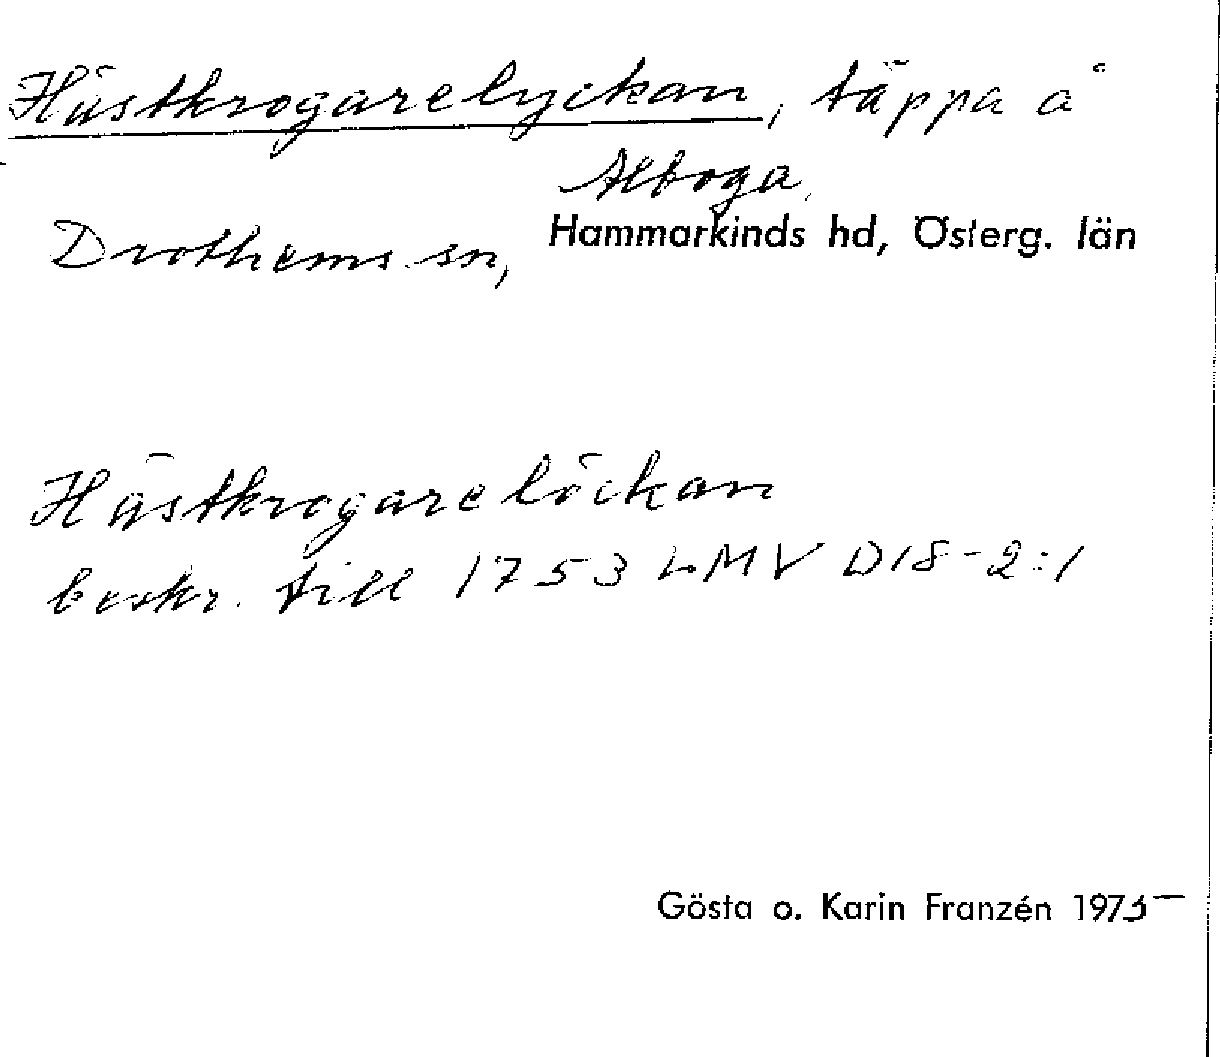 Hästkrogarelyckan, täppa å
Alboga,
Drothems sn, Hammarkinds hd, Österg. län
Hästkrogarelöckan
beskr. till 1753 LMV D18-2:1
Gösta o. Karin Franzén 1975